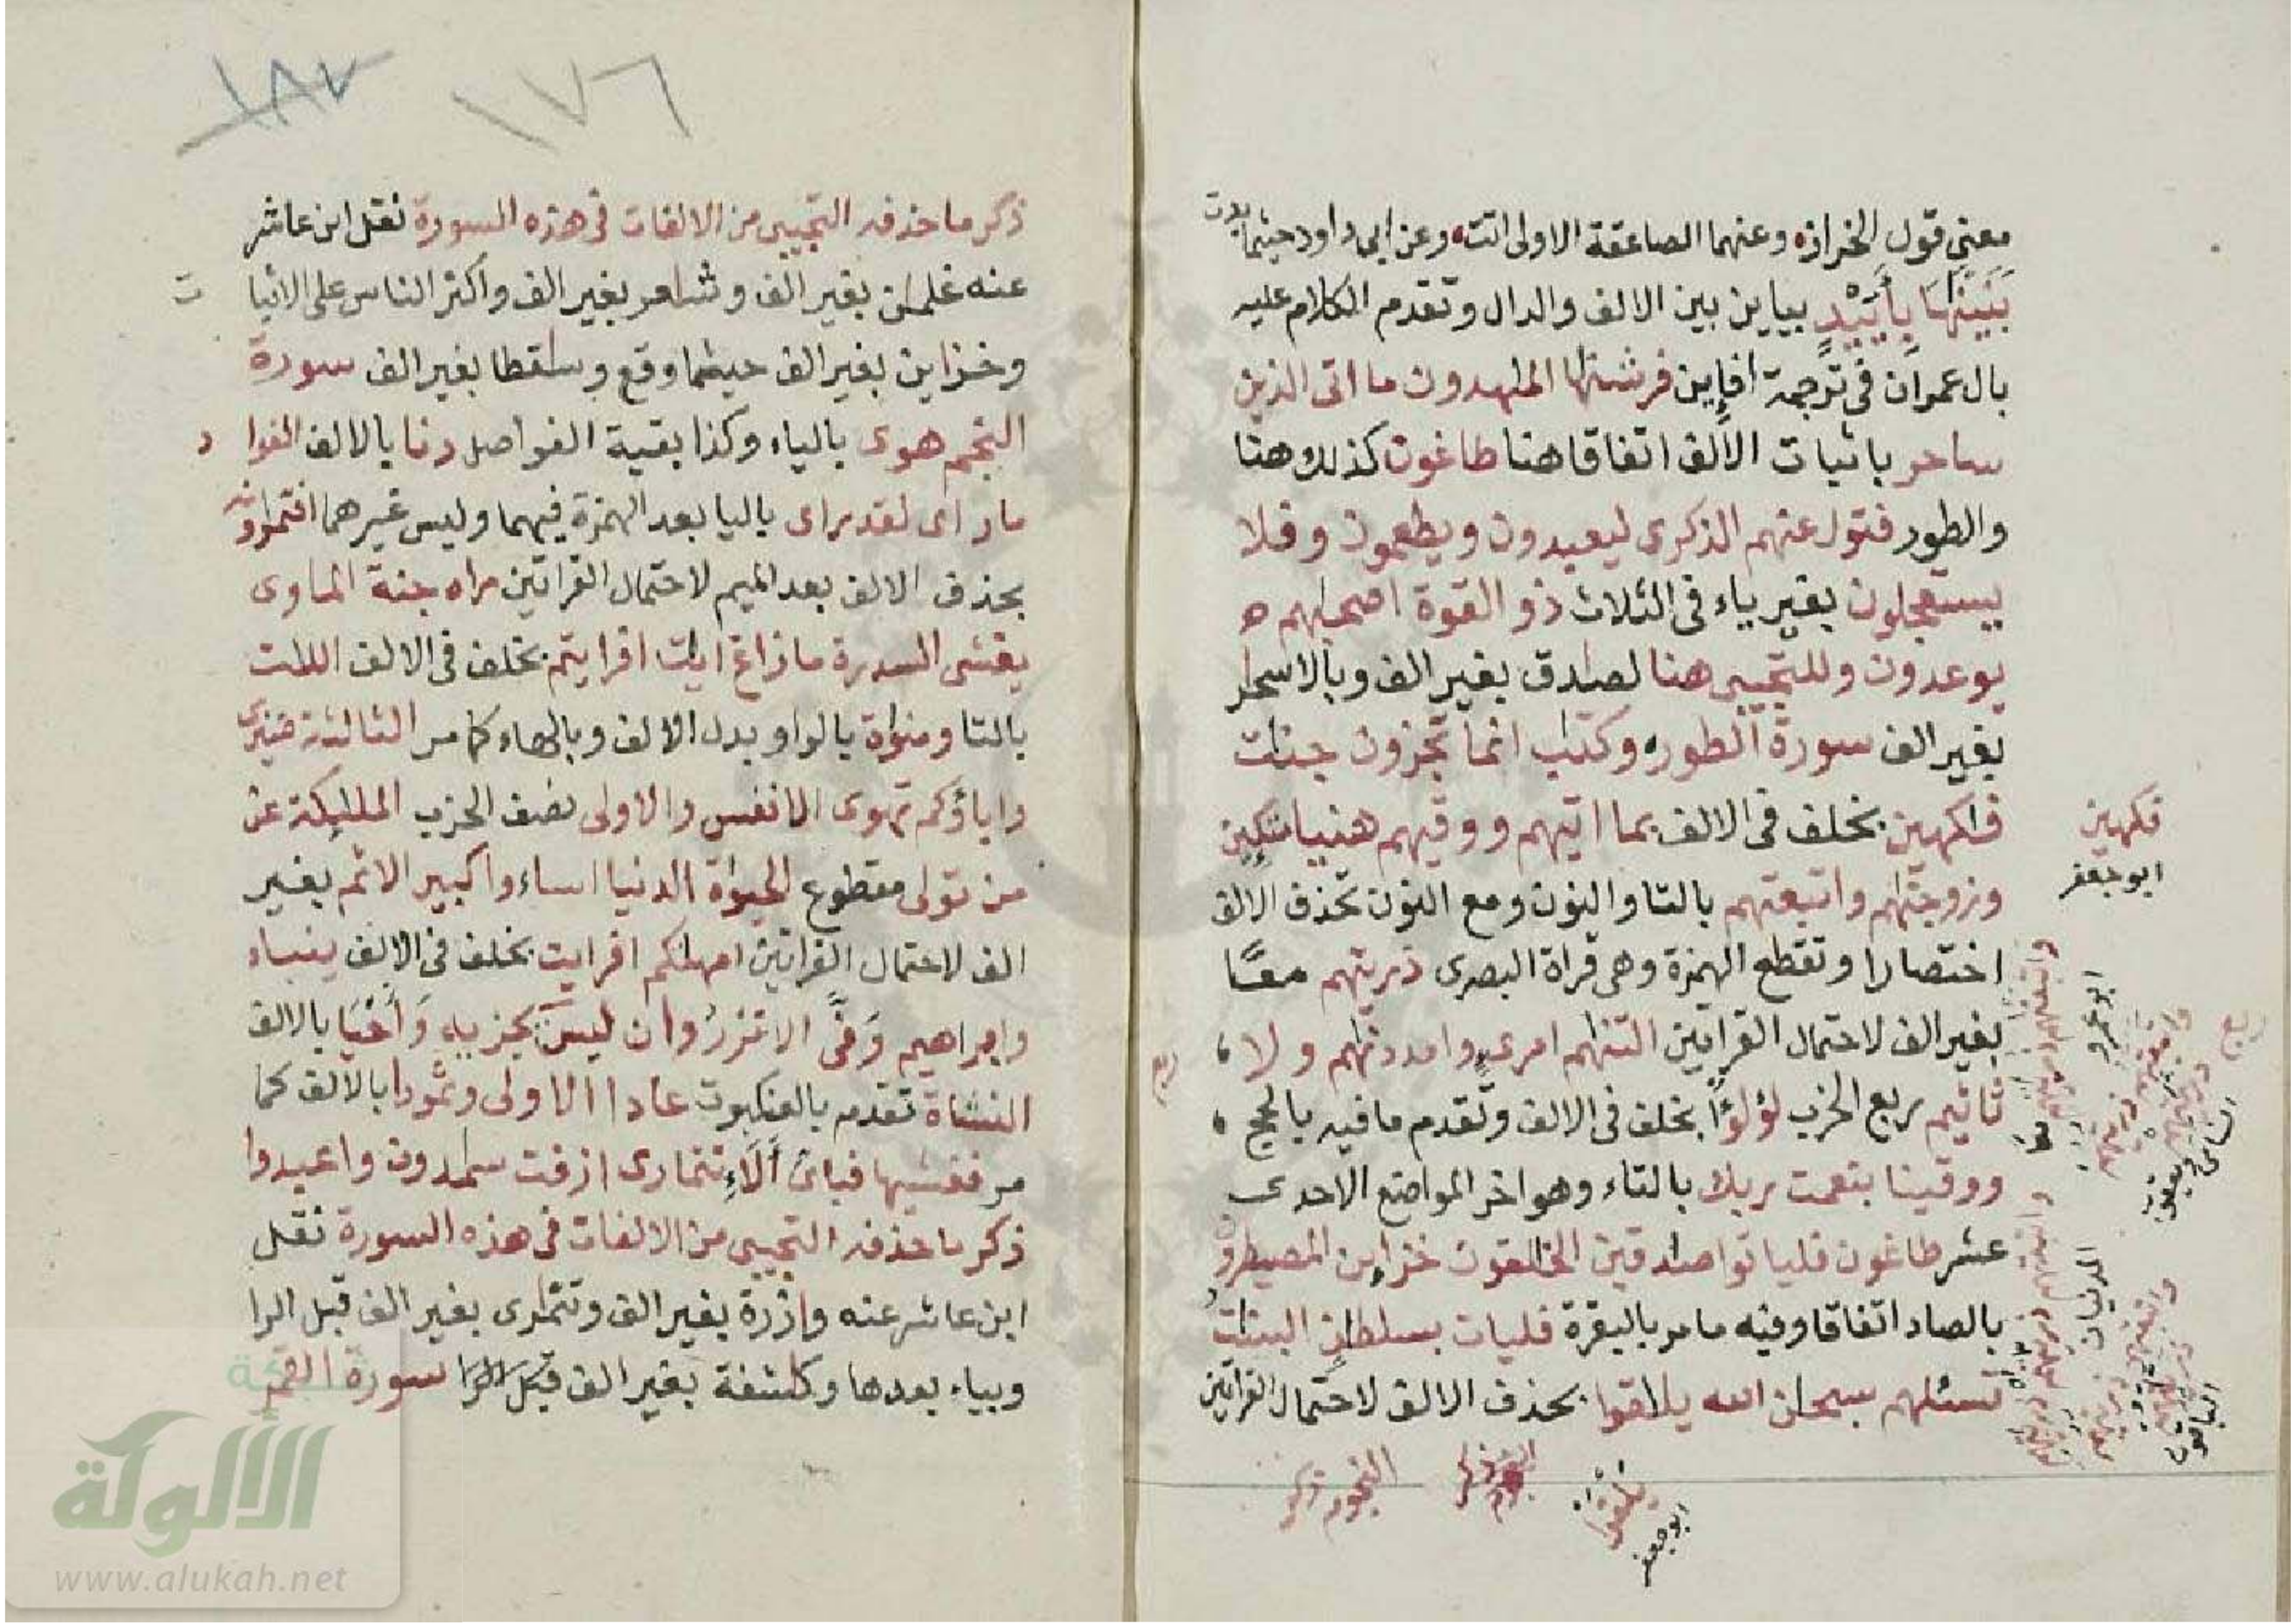 معنى قول الخراز وعنهما الصاعقة الاولى اتت وعن ابى داود حيثما بدت
بنينها بأييد بياين بين الالف والدال وتقدم الكلام عليه
بال عمران فى ترجمة افإين فرشنها المهدون ما اتى الذين
ساحر باثبات الالف اتفاقا هنا طاغون كذلك هنا
والطور فتول عنهم الذكرى ليعبدون ويطعمون وفلا
يستعجلون بغير ياء فى الثلاث ذو القوة اصحبهم
يوعدون وللتجيبى هنا لصادق بغير الف وبالاسحار
بغير الف سورة الطور وكتب انما تجزون جنت
فاكهين بخلف فى الالف بما اتيهم ووقيهم هنيا متكين
وزوجنهم واتبعتهم بالتا والنون ومع النون تحذف الالف
اختصارا وتقطع الهمزة وهى قراة البصرى ذريتهم معا
بغير الف لاحتمال القراتين التنهم امرى وامددنهم ولا
تاثيم ربع الحزب لؤلؤا بخلف فى الالف وتقدم ما فيه بالحج
ووقينا بنعمت ربك بالتاء وهو اخر المواضع الاحدى
عشر طاغون فلياتوا صادقين الخلقون خزاين المصيطرون
بالصاد اتفاقا وفيه ما مر بالبقرة فليات بسلطن البنت
تسئلهم سبحن الله يلقوا بحذف الالف لاحتمال القراتين
فكهين
ابو جعفر
ابو عمرو
المدنيان
الباقون
يلقوا
ابو جعفر
النجوم
١٧٦
١٨٧
ذكر ما حذفه التجيبى من الالفات فى هذه السورة نقل ابن عاشر
عنه غلمان بغير الف وشاعر بغير الف واكثر الناس على الاثبات
وخزاين بغير الف حيثما وقع وساقطا بغير الف سورة
النجم هوى بالياء وكذا بقية الفواصل دنا بالالف الفواد
ما راى لقد راى باليا بعد الهمزة فيهما وليس غيرهما افتمرونه
بحذف الالف بعد الميم لاحتمال القراتين راه جنة الماوى
يغشى السدرة ما زاغ ايت افرايتم بخلف فى الالف اللت
بالتا ومنوة بالواو بدل الالف وبالهاء كما مر الثالثة ضيزى
واباؤكم تهوى الانفس والاولى نصف الحزب المليكة عن
من تولى مقطوع الحيوة الدنيا اساءوا كبير الاثم بغير
الف لاحتمال القراتين امهتكم افرايت بخلف فى الالف ينباء
وابراهيم وفى الا تزر وان ليس يجزيه وأحيا بالالف
النشاة تقدم بالعنكبوت عادا الاولى وثمودا بالالف كما
مر فغشيها فباى ألاء تتمارى ازفت سمدون واعبدوا
ذكر ما حذفه التجيبى من الالفات فى هذه السورة نقل
ابن عاشر عنه وازرة بغير الف وتتمارى بغير الف قبل الرا
وبياء بعدها وكاشفة بغير الف قبل الرا سورة القمر
الألوكة
www.alukah.net